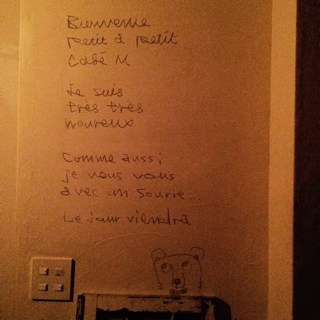 Bienvenue
petit à petit
Café M
Je suis
très très
houreux
Comme aussi
je vous vous
avec un sourire
Le jour viendra